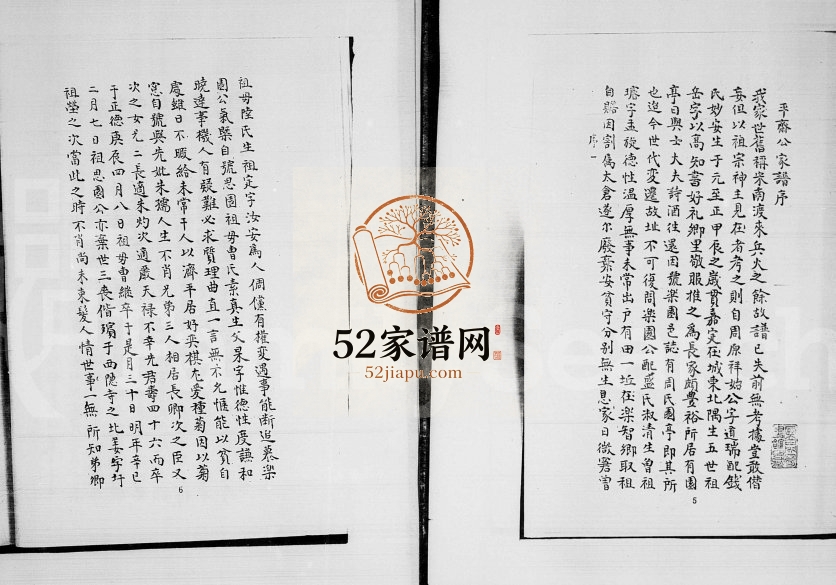 平齋公家譜序
我家世舊稱宋南渡來兵火之餘故譜已失前無考據豈敢偕
妄但以祖宗神主見在者考之則自周原祥始公字道瑞配錢
氏妙安生于元至正甲辰之歲貫嘉定在城東北隅生五世祖
岳字以高知書好禮鄉里敬服推之為長家頗豐裕所居有園
亭日與士大夫詩酒往還因號樂園邑誌有周氏園亭即其所
也迨今世代變遷故址不可復問樂園公配藍氏淑清生曾祖
璿字孟旋德性溫厚無事未常出戶有田一坵在樂智鄉取租
自贍因割為太倉遂尔廢棄安貧守分別無生息家日微窘曾
序一
5
祖母陸氏生祖定字汝安為人倜儻有權变遇事能断追慕樂
園公氣槩自號思園祖母曹氏素真生父杲字惟德性度謙和
曉達事機人有疑难必求質理曲直一言無不允愜能以貧自
處雖日不暇給未常干人以濟平居好奕棋尤愛種菊因以菊
窓自號與先妣朱孺人生不肖兄弟三人相居長卿次之臣又
次之女兄二長適朱灼次適嚴天禄不幸先君壽四十六而卒
于正德庚辰四月八日祖母曹継卒于是月三十日明年辛巳
二月七日祖思園公亦棄世三喪偕殯于西隱寺之北姜字圩
祖塋之次當此之時不肖尚未束髮人情世事一無所知弟卿
6
52家谱网
52jiapu.com